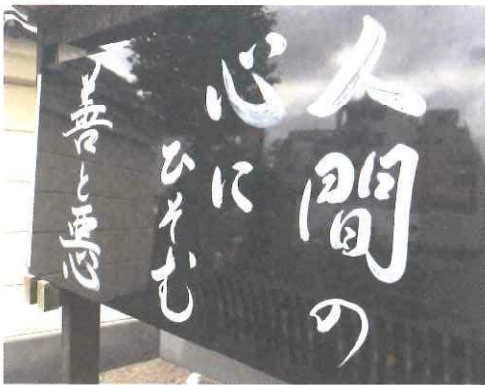 人間の
心に
ひそむ
善と悪